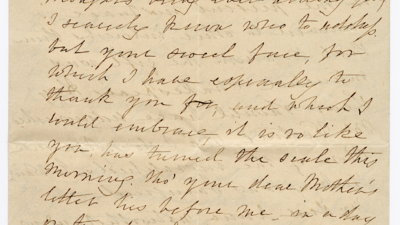 I scarcely know who to
but your sweet face, for
which I have especially to
thank you for, and which I
could embrace, it is so like
you, has turned the scale this
morning. Tho' your dear Mother's
letter lies before me in a day